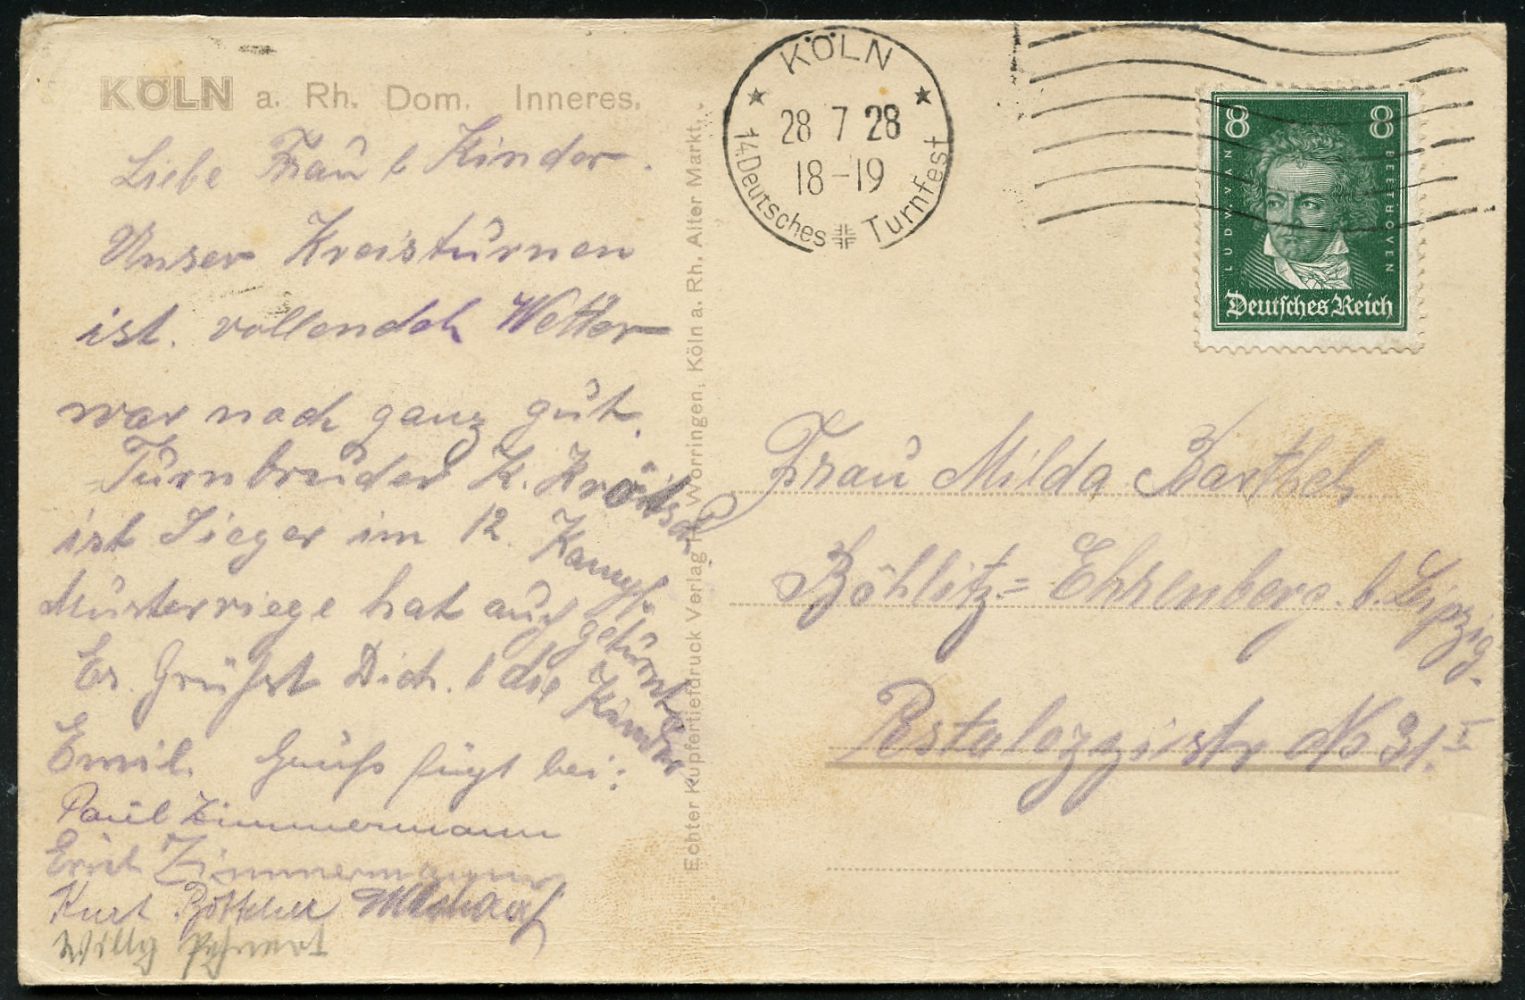 KÖLN a. Rh. Dom. Inneres.
Liebe Frau & Kinder.
Unser Kreisturnen
ist. vollendeh Wetter
war noch ganz gut.
Turnbruder K. Krötsch
ist Sieger im 12. Kampf.
Musterriege hat auch geturnt
Es. Grüßt Dich. & die Kinder
Emil. Gruß fügt bei:
Paul Zimmermann
Erich Zimmermann
Kurt Böttcher
Willy
Echter Kupfertiefdruck Verlag Worringen, Köln a. Rh. Alter Markt.
KÖLN
28 7 28
18-19
14. Deutsches Turnfest
8 8
LUDW. VAN BEETHOVEN
Deutsches Reich
Frau Milda Barthel
Böhlitz=Ehrenberg. b. Leipzig.
Pestalozzistr No 31. I